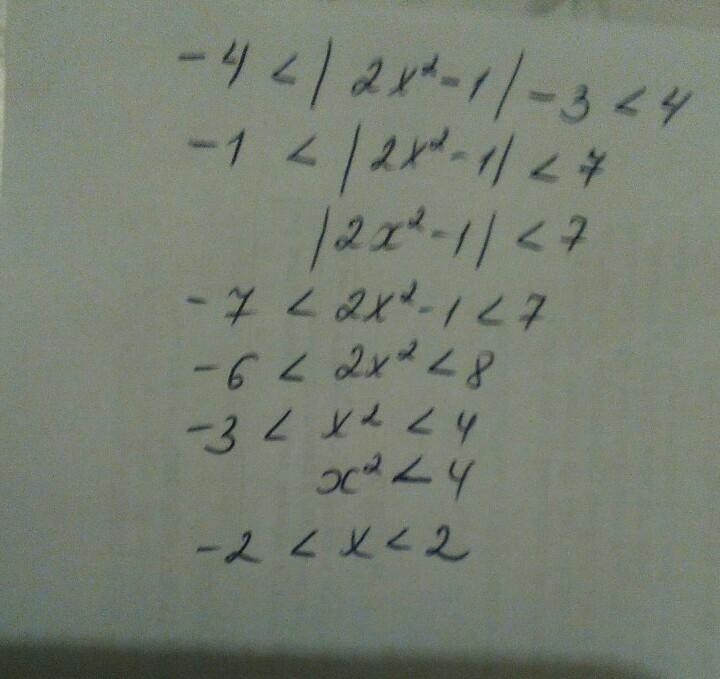 -4 < | 2x² - 1 | - 3 < 4
-1 < | 2x² - 1 | < 7
| 2x² - 1 | < 7
-7 < 2x² - 1 < 7
-6 < 2x² < 8
-3 < x² < 4
x² < 4
-2 < x < 2